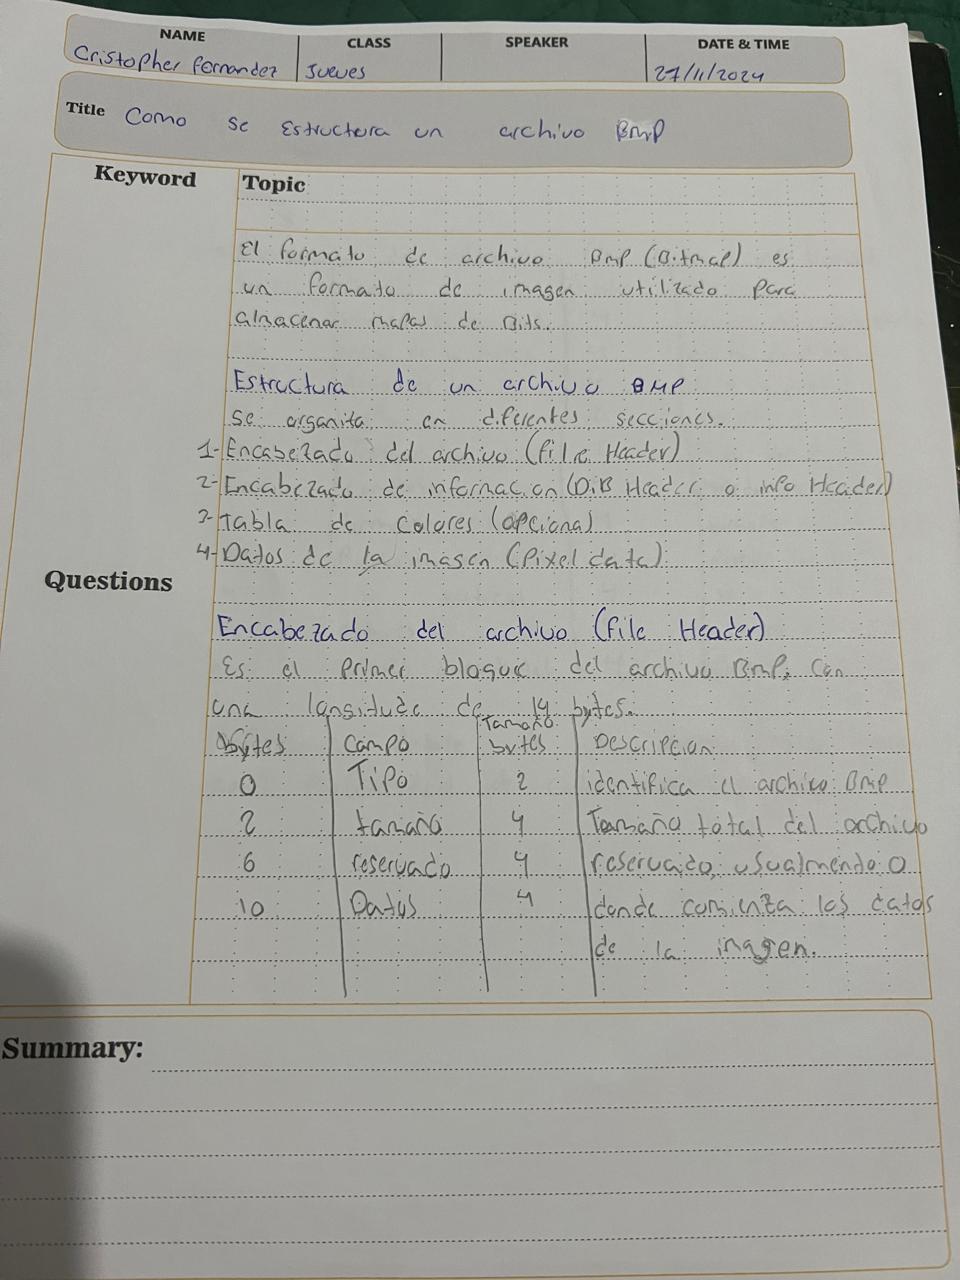 NAME CLASS SPEAKER DATE & TIME
Cristopher Fernandez Jueves 27/11/2024
Title Como se Estructura un archivo BMP
Keyword Topic
El formato de archivo BMP (Bitmap) es
un formato de imagen utilizado para
almacenar mapas de Bits.
Estructura de un archivo BMP
se organiza en diferentes secciones.
1-Encabezado del archivo (File Header)
2-Encabezado de informacion (DiB Header o info Header)
3-Tabla de colores (opcional)
4-Datos de la imagen (Pixel data)
Questions
Encabezado del archivo (File Header)
Es el primer bloque del archivo BMP, con
una longitude de 14 bytes.
bytes Campo Tamaño bytes Descripcion
0 Tipo 2 identifica el archivo BMP
2 tamaño 4 Tamaño total del archivo
6 reservado 4 reservado, usualmente 0
10 Datos 4 donde comienza los datos
de la imagen.
Summary: